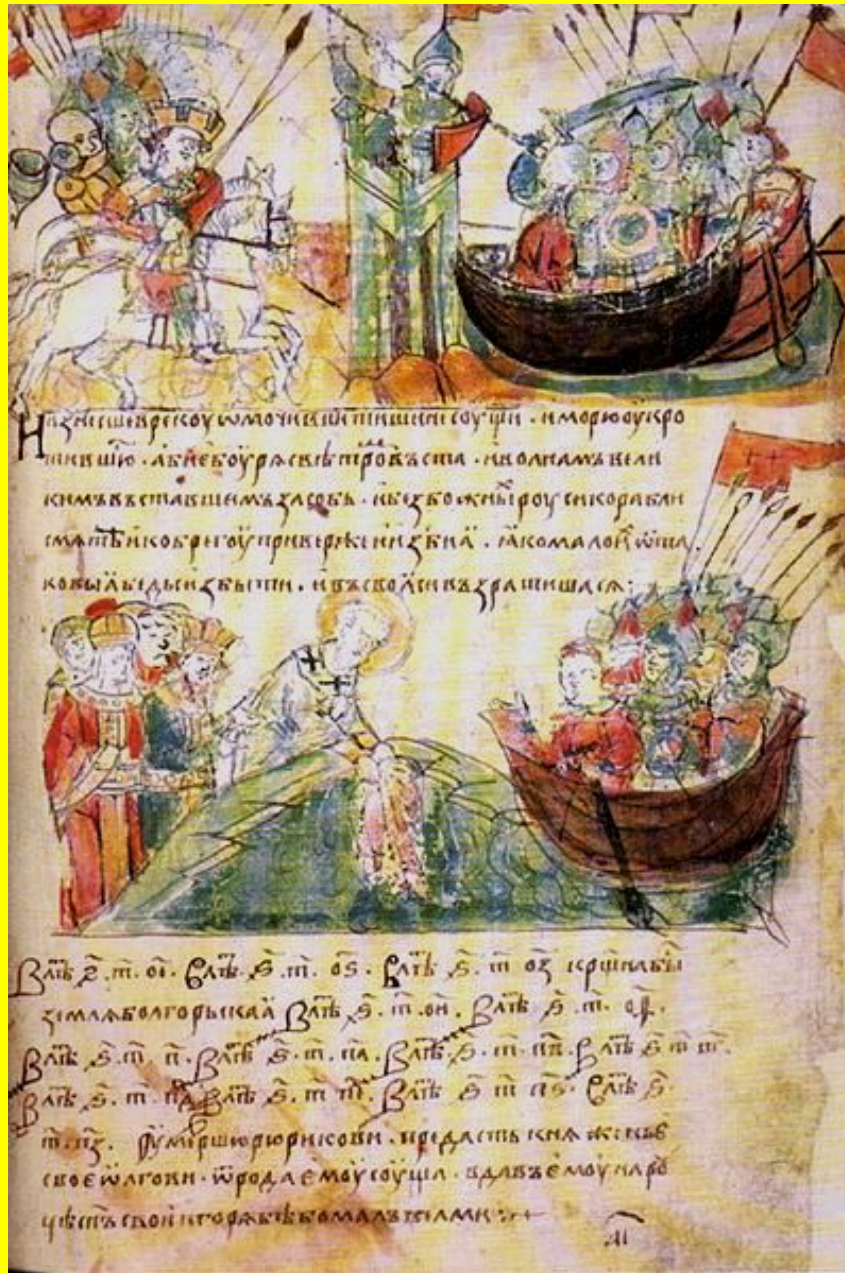 соущи . и морю оукро
тившю . абие боурѧ с вѣтроⷨ въста . и волнамъ вели
кимъ въставшемъ засобь . и безбожныⷯ роуси корабли
смѧте и к брегоу приверже и изби ѧ . ꙗко мало иⷯ ѿ та
ковыѧ беды избыти . и въ своꙗси възратишасѧ :
В лⷮѣ ҂ѕ҃ . т҃ . ое҃ . В лⷮѣ ҂ѕ҃ . т҃ . оѕ҃ . В лⷮѣ ҂ѕ҃ . т҃ оз҃ крⷭщна быⷭ
землѧ болгорьскаѧ В лⷮѣ ҂ѕ҃ . т҃ . ои҃ . В лⷮѣ ҂ѕ҃ . т҃ . оѳ҃ .
В лⷮѣ ҂ѕ҃ . т҃ . п҃ . В лⷮѣ ҂ѕ҃ . т҃ . па҃ . В лⷮѣ ҂ѕ҃ . т҃ . пв҃ . В лⷮѣ ҂ѕ҃ т҃ пг҃ .
В лⷮѣ ҂ѕ҃ . т҃ пд҃ В лⷮѣ ҂ѕ҃ . т҃ пе҃ . В лⷮѣ ҂ѕ҃ т҃ пѕ҃ . В лⷮѣ ҂ѕ҃ .
т҃ . пз҃ . оумершю рюрикови . предасть кнѧженье
свое ѡлгови . ѿ рода емоу соуща . вдавъ емоу на роу
цѣ с҃нъ свои игорѧ бѣ бо малъ велми :